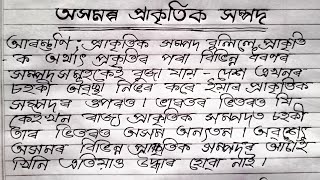 অসমৰ প্ৰাকৃতিক সম্পদ
আৰম্ভণি : প্ৰাকৃতিক সম্পদ বুলিলে প্ৰাকৃতি
-ক অৰ্থাৎ প্ৰকৃতিৰ পৰা বিভিন্ন ধৰণৰ
সম্পদসমূহকেই বুজা যায় - দেশ এখনৰ
চহকী অৱস্থা নিৰ্ভৰ কৰে ইয়াৰ প্ৰাকৃতিক
সম্পদৰ ওপৰত। ভাৰতৰ ভিতৰত যি
কেইখন ৰাজ্য প্ৰাকৃতিক সম্পদত চহকী
তাৰ ভিতৰত অসম অন্যতম। অৱশ্যে
অসমৰ বিভিন্ন প্ৰাকৃতিক সম্পদৰ আটাই
খিনি এতিয়াও উদ্ধাৰ হোৱা নাই।